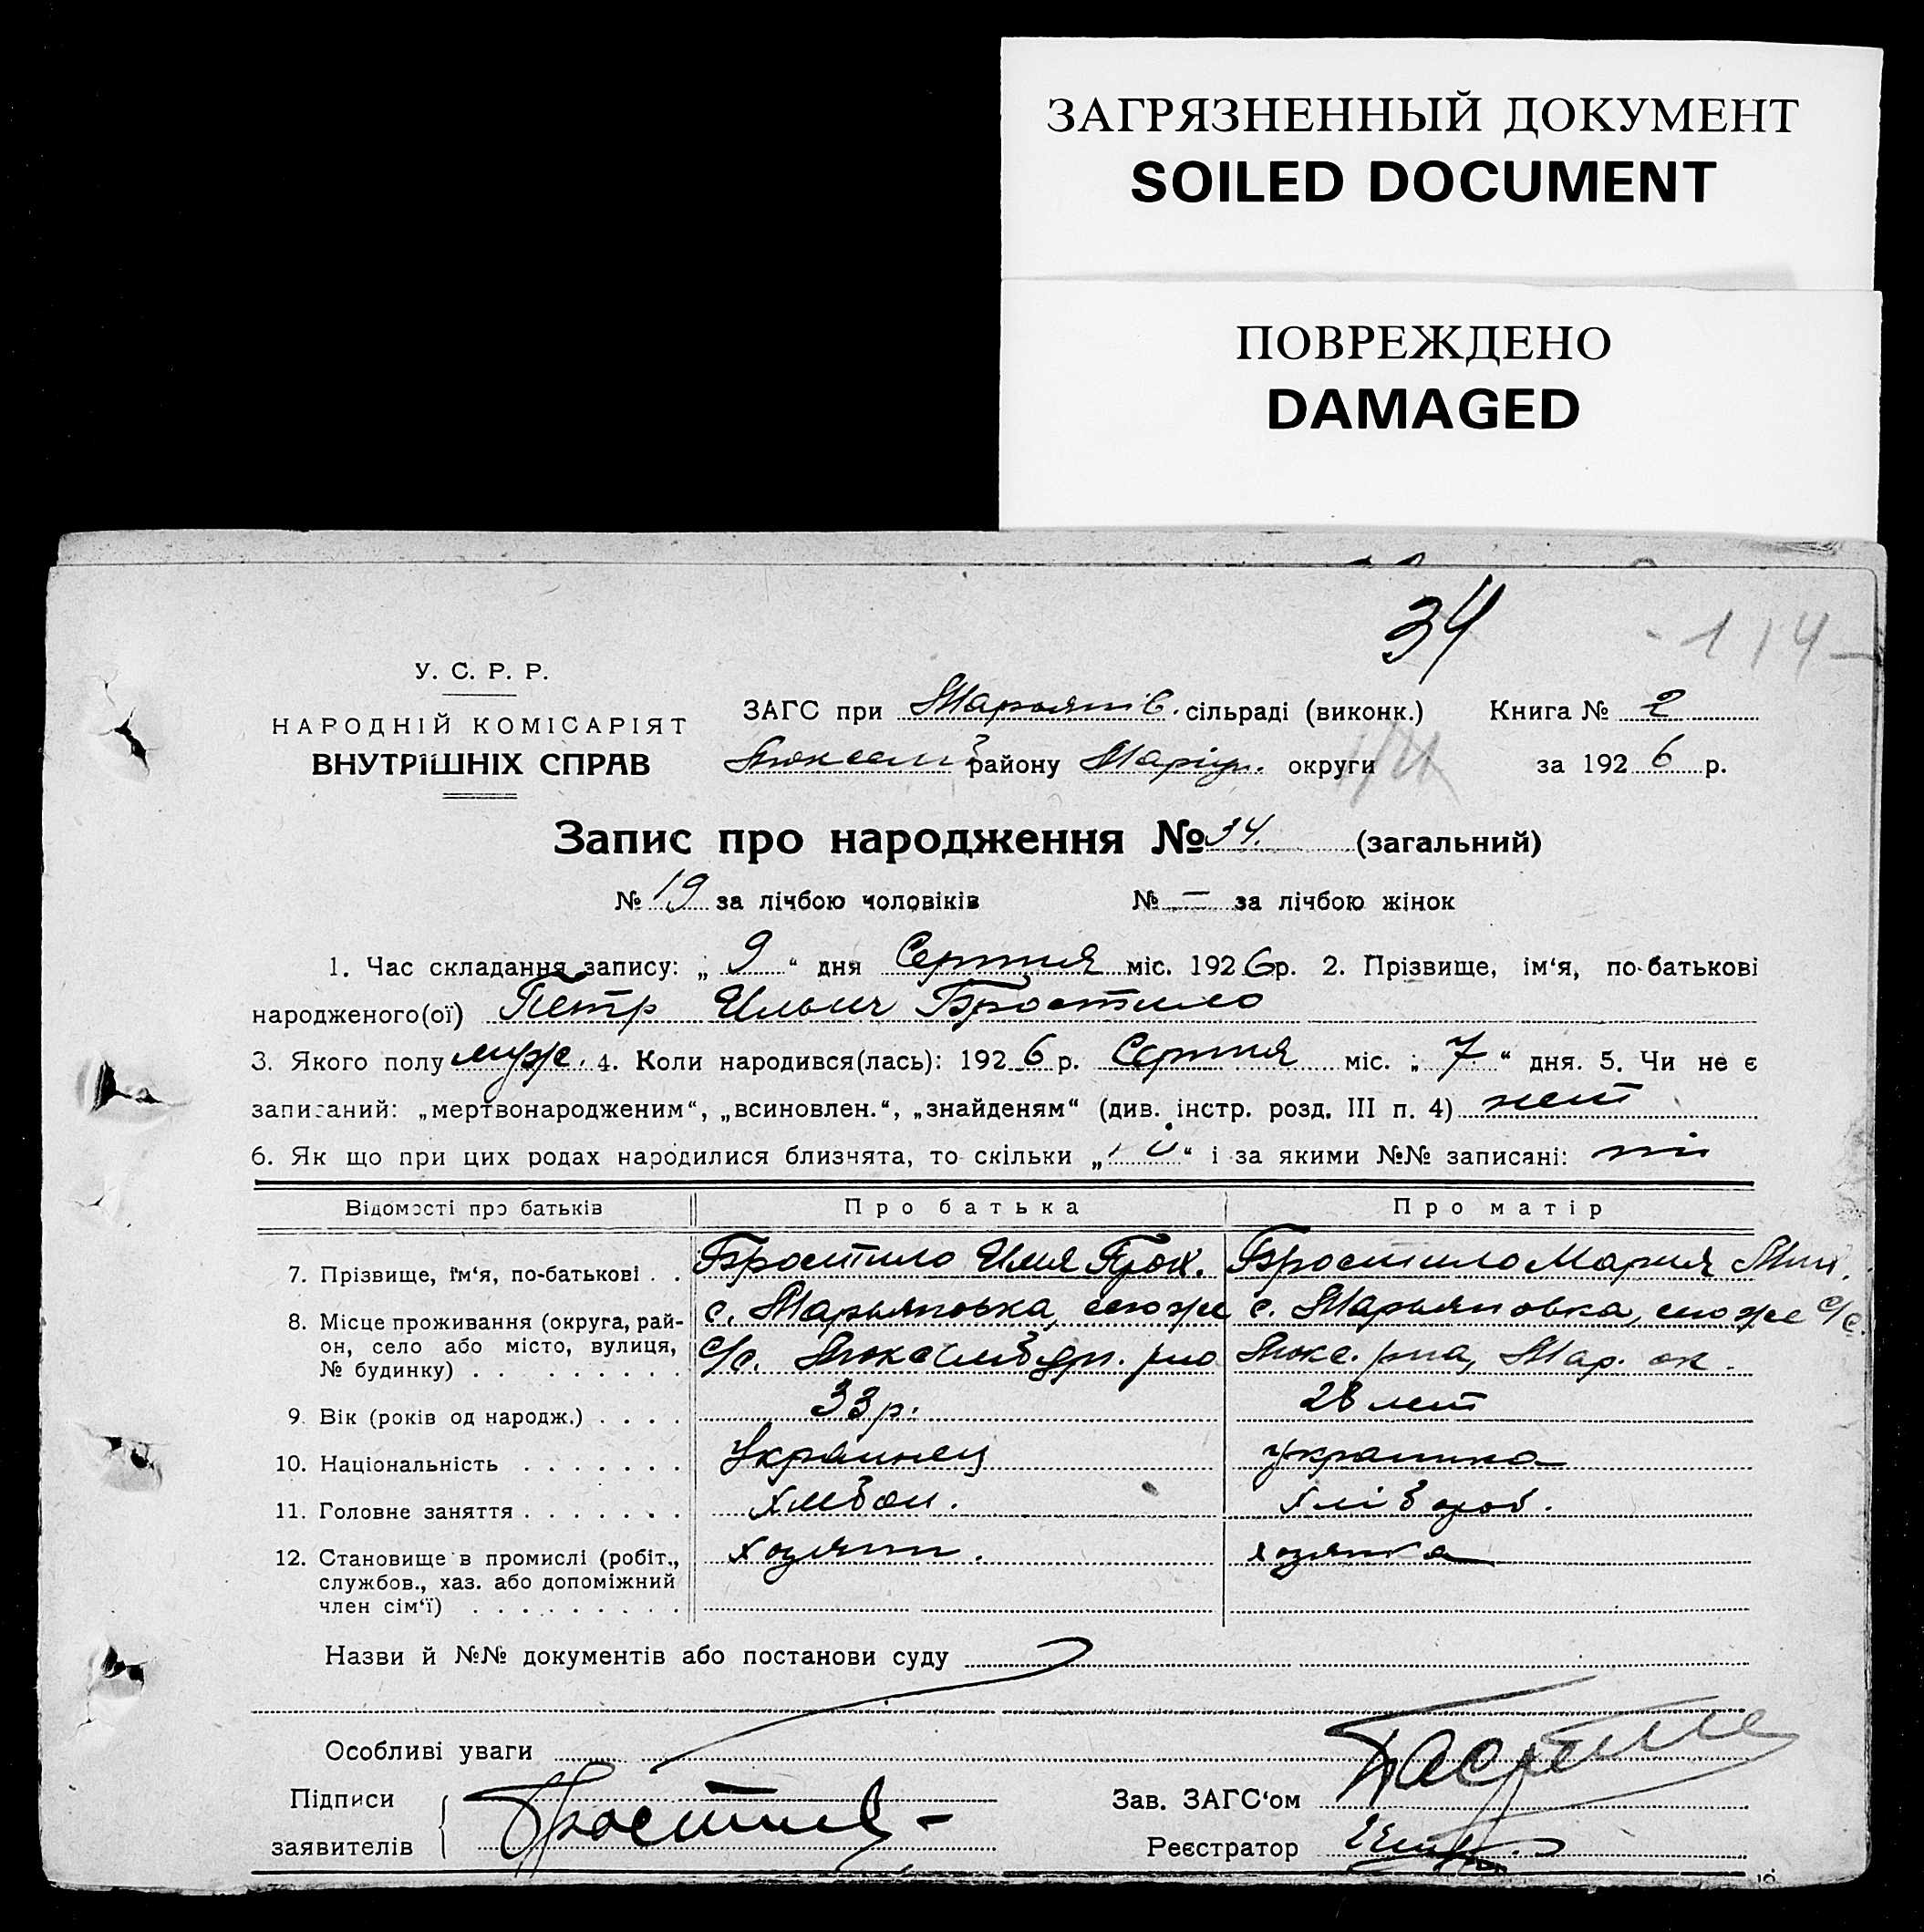 ЗАГРЯЗНЕННЫЙ ДОКУМЕНТ
SOILED DOCUMENT
ПОВРЕЖДЕНО
DAMAGED
34
114
У. С. Р. Р.
НАРОДНІЙ КОМІСАРІЯТ
ВНУТРІШНІХ СПРАВ
ЗАГС при Марьянів. сільраді (виконк.) Книга № 2
району Маріуп. округи за 1926 р.
Запис про народження № 34. (загальний)
№ 19 за лічбою чоловіків № — за лічбою жінок
1. Час складання запису: „ 9 “ дня Серпня міс. 1926 р. 2. Прізвище, ім‘я, по-батькові
народженого(ої) Петр Ильич Бростило
3. Якого полу муж. 4. Коли народився(лась): 1926 р. Серпня міс. „ 7 “ дня. 5. Чи не є
записаний: „мертвонародженим“, „всиновлен.“, „знайденям“ (див. інстр. розд. III п. 4) нет
6. Як що при цих родах народилися близнята, то скільки „ “ і за якими №№ записані: ні
Відомості про батьків Про батька Про матір
7. Прізвище, ім‘я, по-батькові . . Бростило Илья Прох. Бростило Мария
8. Місце проживання (округа, рай-
он, село або місто, вулиця,
№ будинку) . . . . . . . . .
с. Марьяновка, тоже с. Марьяновка, тоже с/с.
с/с. р-на, Мар. ок.
9. Вік (років од народж.) . . . . 33 р. 28 лет
10. Національність . . . . . . . Украинец украинка
11. Головне заняття . . . . . . . хлібороб.
12. Становище в промислі (робіт.,
службов., хаз. або допоміжний
член сім‘ї) . . . . . . . . .
хозяин. хозяйка
Назви й №№ документів або постанови суду
Особливі уваги
Підписи
заявителів Бростило
Зав. ЗАГС‘ом
Реєстратор